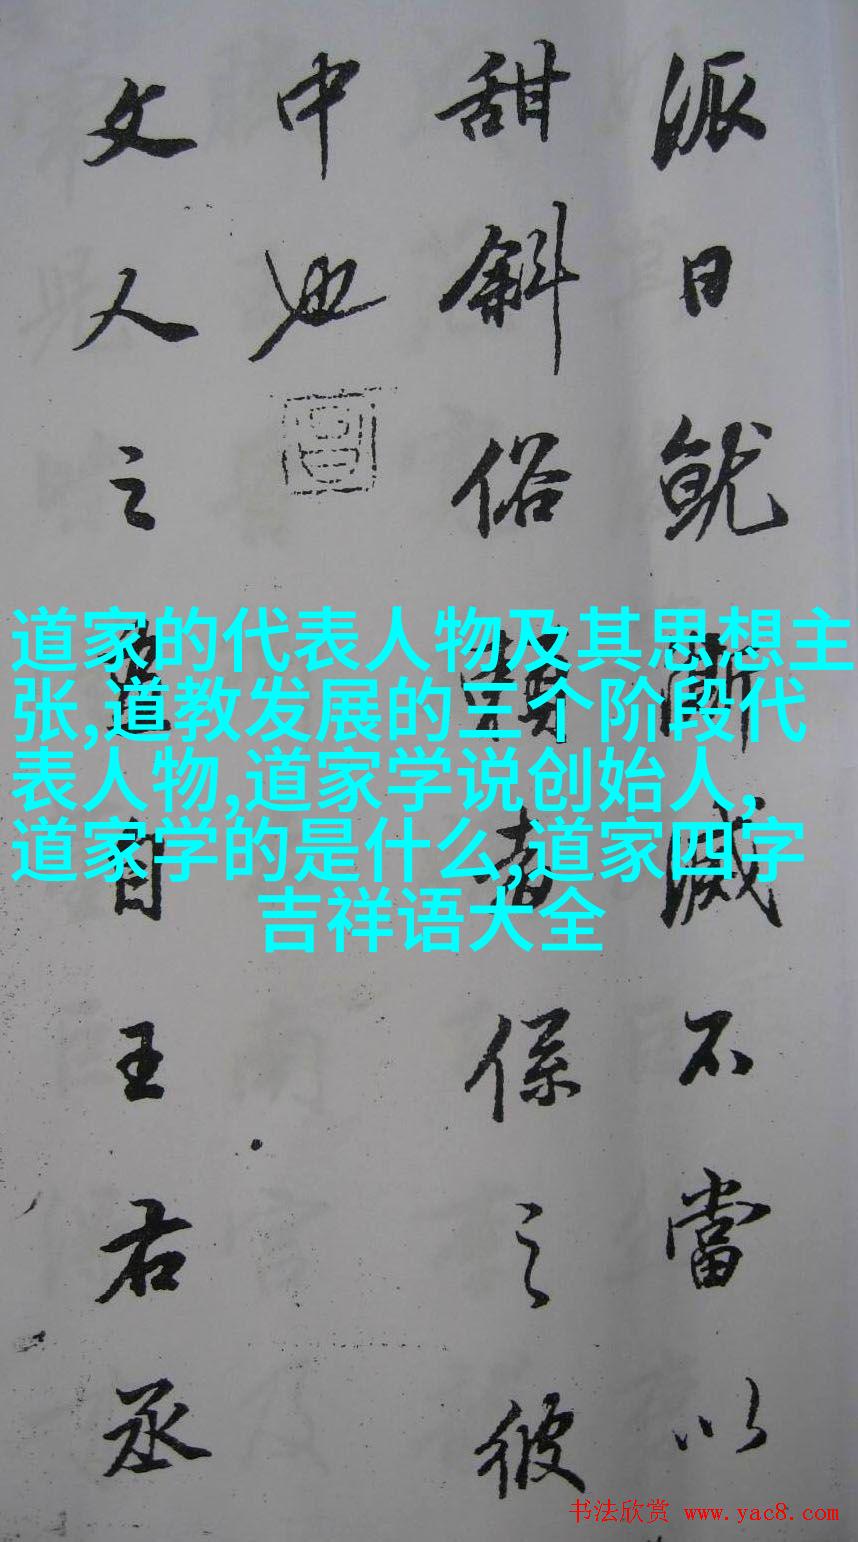 派日就漸滅不當以
甜斜俗賴者係之彼
中也
文人之畫自王右丞
道家的代表人物及其思想主
张,道教发展的三个阶段代
表人物,道家学说创始人,
道家学的是什么,道家四字
吉祥语大全
书法欣赏 www.yac8.com